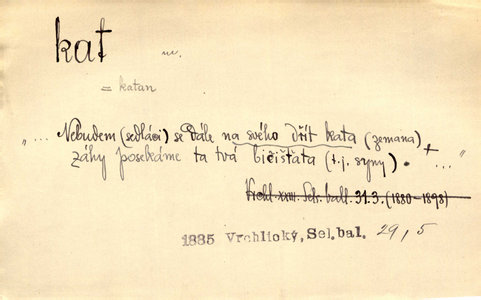 kat m.
= katan
"... Nebudem (sedláci) se dále na svého dřít kata (zemana) +
záhy posekáme ta tvá bičišťata (t.j. syny) . ..."
Vrchl. XXIII. Sels. ball. 31.3. (1880-1898)
1885 Vrchlický, Sel.bal. 29,5